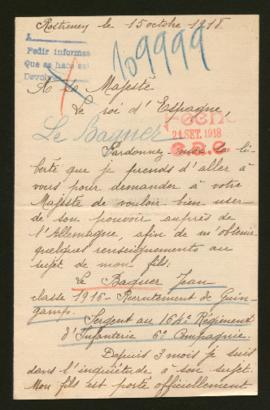 Rostrenen le 15 octobre 1918
A
Pedir informes
Que se hace sa
Devolver
109999
A Sa Majesté
Le roi d'Espagne,
Le Baquer
21 SET. 1918
Pardonnez-moi la li
berté que je prends d'aller à
vous pour demander à votre
Majesté de vouloir bien user
de son pouvoir auprès de
l'Allemagne, afin de m'obtenir
quelques renseignements au
sujet de mon fils:
Le Baquer Jean
classe 1916 - Recrutement de Guin
gamp.
Sergent au 164e Régiment
d'Infanterie 6e Compagnie.
Depuis 3 mois je suis
dans l'inquiétude à son sujet.
Mon fils est porté officiellement